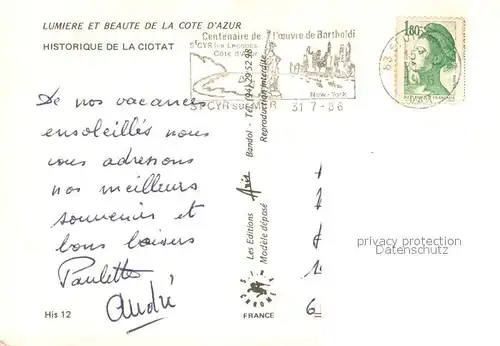 LUMIERE ET BEAUTE DE LA COTE D'AZUR
HISTORIQUE DE LA CIOTAT
Centenaire de l'œuvre de Bartholdi
St CYR les Lecques
Côte d'Azur
New-York
St CYR sur MER 31 7-86
1,80
83 ST
De nos vacances
ensoleillés nous
vous adressons
nos meilleurs
souvenirs et
bons baisers
Paulette
André
Les Editions Aris Bandol - Tél. (94) 29 52 98
Modèle déposé Reproduction interdite
privacy protection
Datenschutz
His 12
FRANCE
6